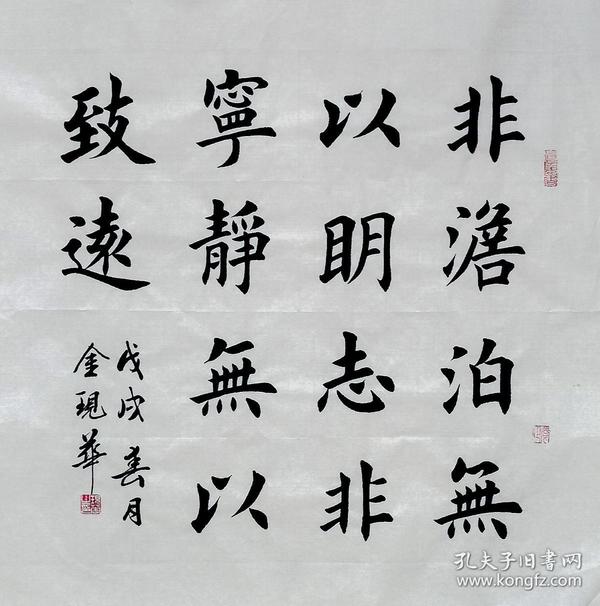 非澹泊無
以明志非
寧靜無以
致遠
戊戌春月
金現華
孔夫子旧书网
www.kongfz.com